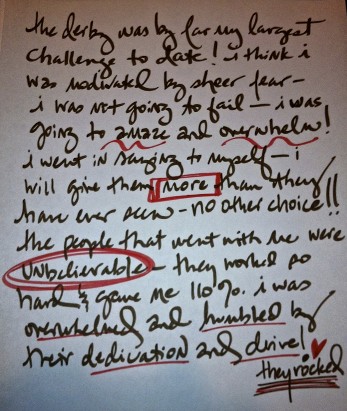 the derby was by far my largest
challenge to date! i think i
was motivated by sheer fear -
i was not going to fail - i was
going to amaze and overwhelm!
i went in saying to myself - i
will give them more than they
have ever seen - no other choice!!
the people that went with me were
unbelievable - they worked so
hard & gave me 110%. i was
overwhelmed and humbled by
their dedication and drive!
they rocked